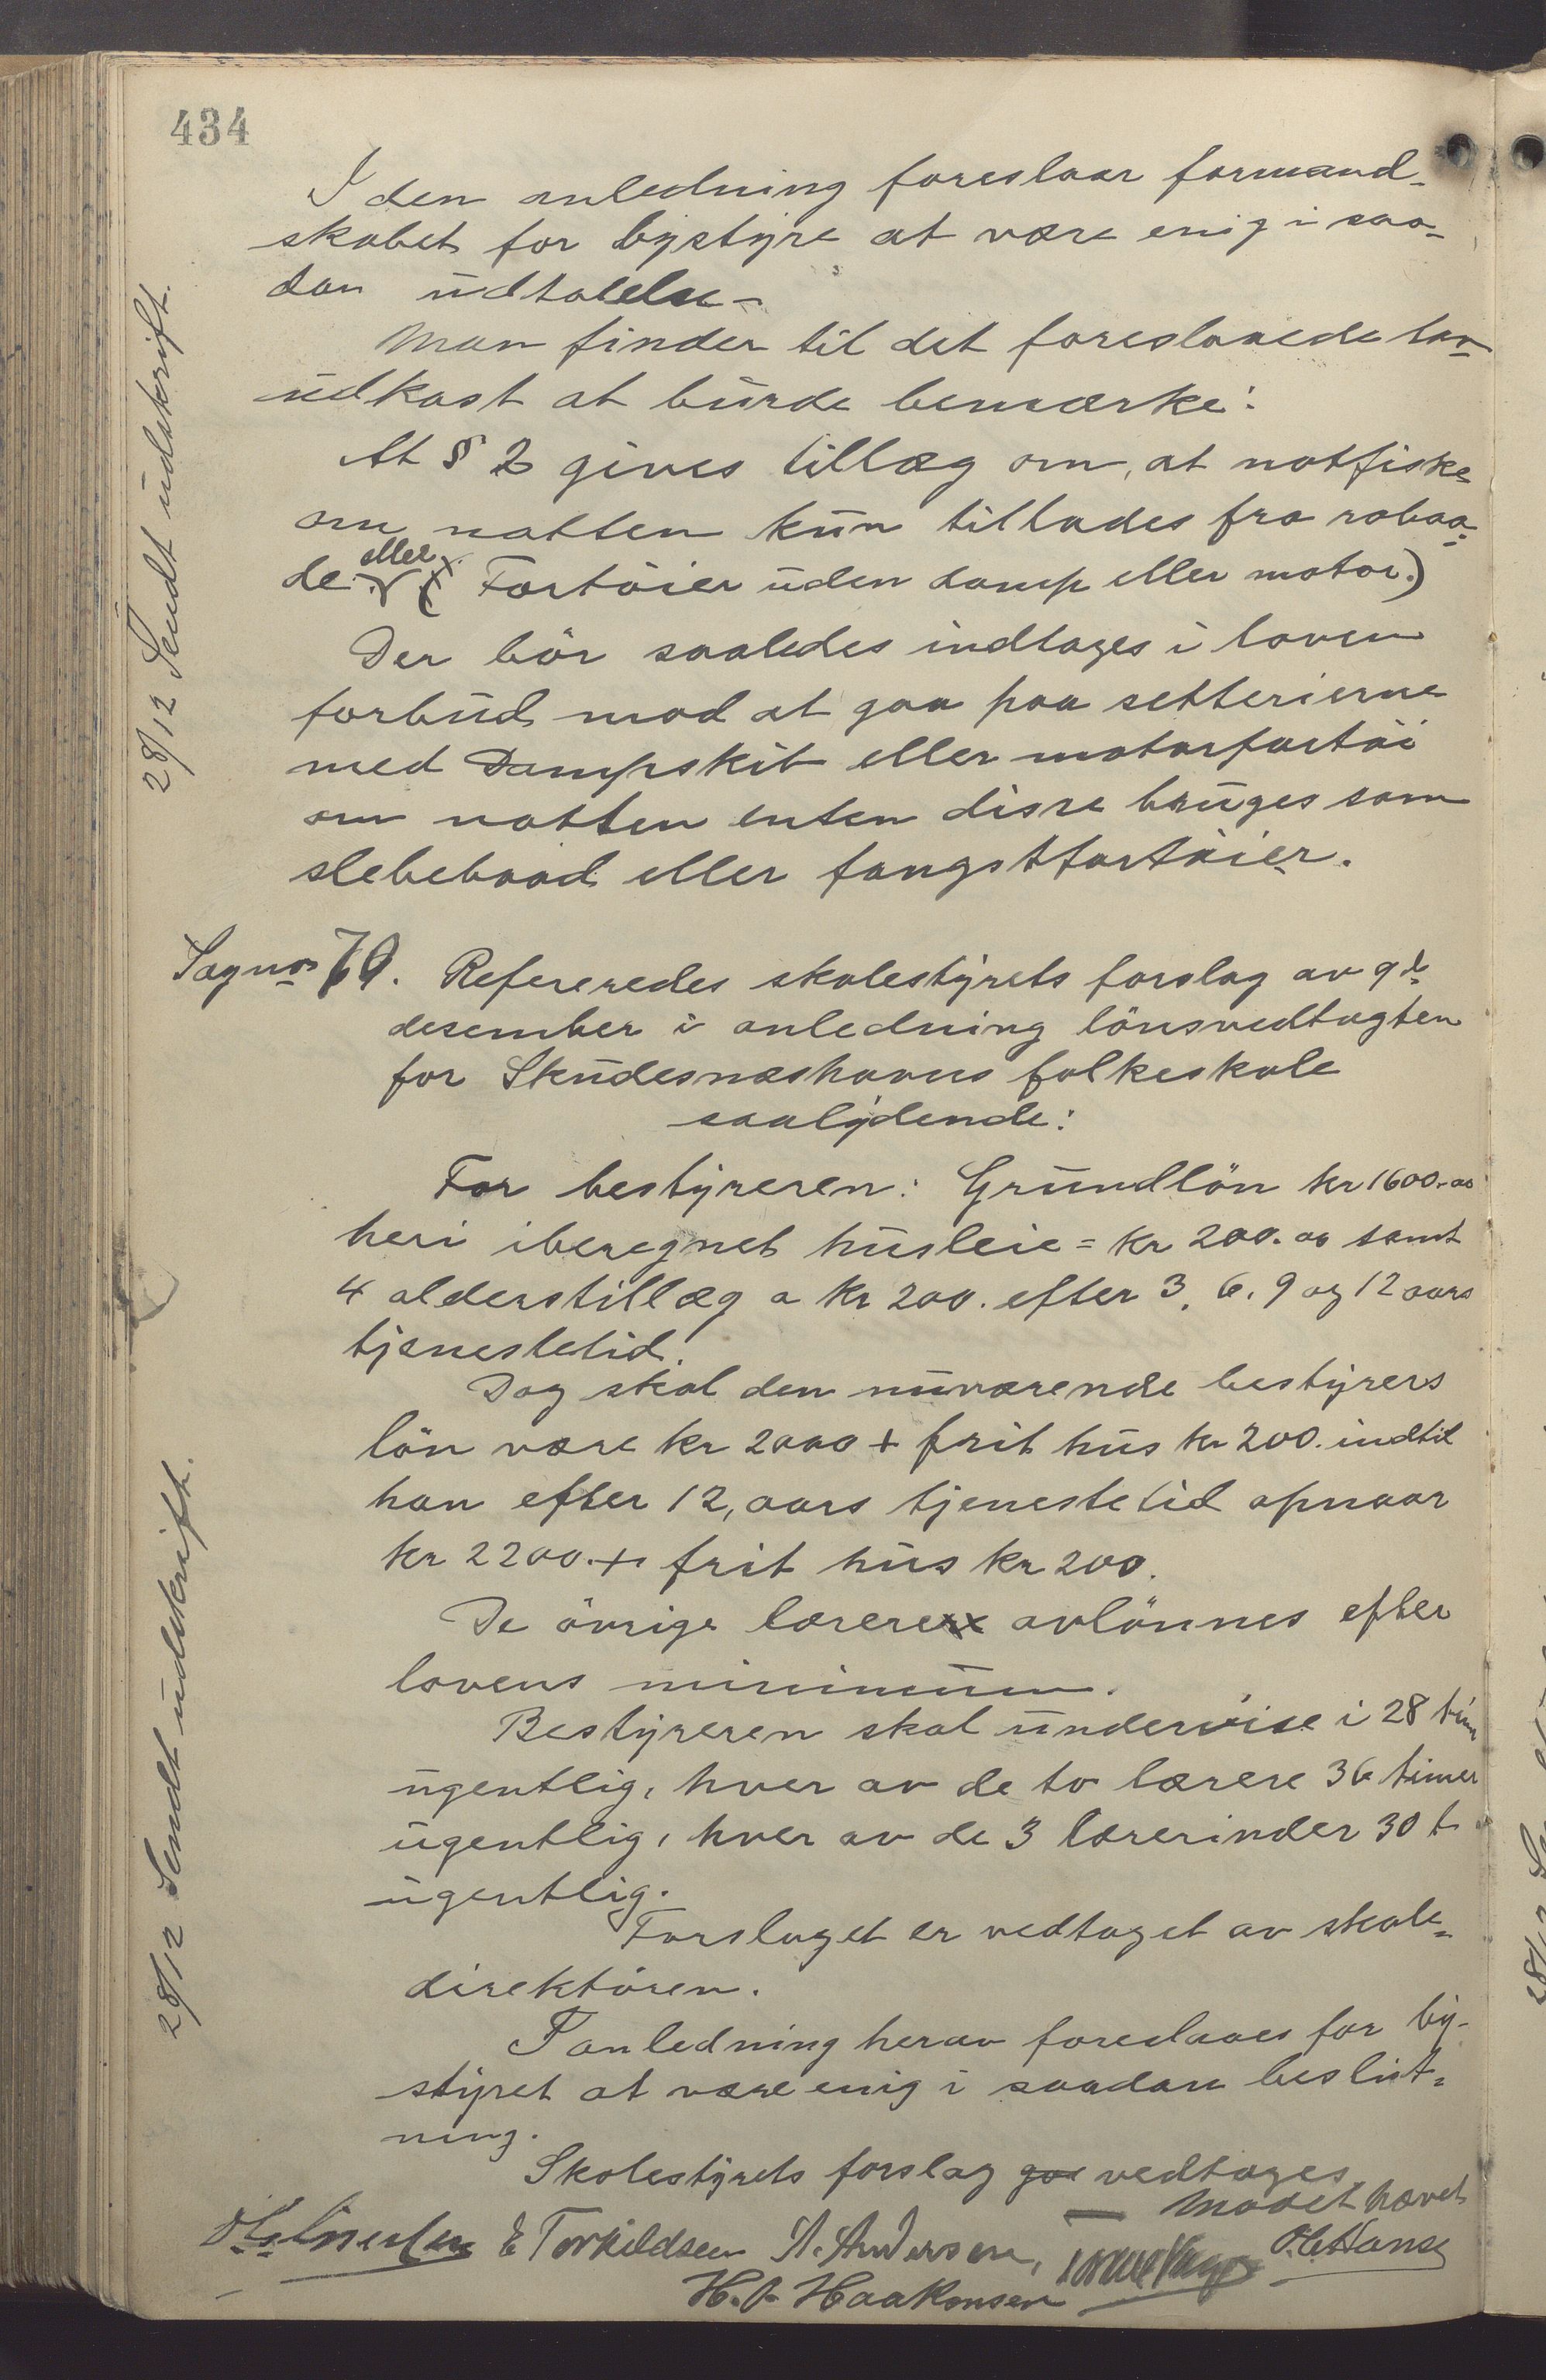 434
I den anledning foreslaar formand-
skabet for bystyre at være enig i saa-
dan udtalelse-
Man finder til det foreslaaede lov
udkast at burde bemærke:
At § 2 gives tillæg om, at notfiske
om natten kun tillades fra robaa-
de eller ( Fortöier uden damp eller motor.)
Der bör saaledes indtages i loven
forbud mod at gaa paa setterierne
med Dampskib eller motorfartöi
om natten enten disse bruges som
slebebaad eller fangstfartöier.
28/12 Sendt udskrift.
Sagno 70. Refereredes skolestyrets forslag av 9de
desember i anledning lönsvedtagten
for Skudesnæshavns folkeskole
saalydende:
For bestyreren: Grundlön kr 1600.00
heri iberegnet husleie = kr 200.00 samt
4 alderstillæg a kr 200. efter 3, 6, 9 og 12 aars
tjenestetid.
Dog skal den nuværende bestyrers
lön være kr 2000 + frit hus kr 200. indtil
han efter 12, aars tjenestetid opnaar
kr 2200.+ frit hus kr 200.
De övrige lærere avlönnes efter
lovens minimum.
Bestyreren skal undervise i 28 tim
ugentlig, hver av de to lærere 36 timer
ugentlig, hver av de 3 lærerinder 30 t
ugentlig.
Forslaget er vedtaget av skole-
direktören.
I anledning herav foreslaaes for by-
styret at være enig i saadan beslut-
ning.
Skolestyrets forslag vedtages.
Mödet hævet
28/12 Sendt udskrift.
E Torkildsen A. Andersen, O. C. Hansen
H. J. Haakonsen